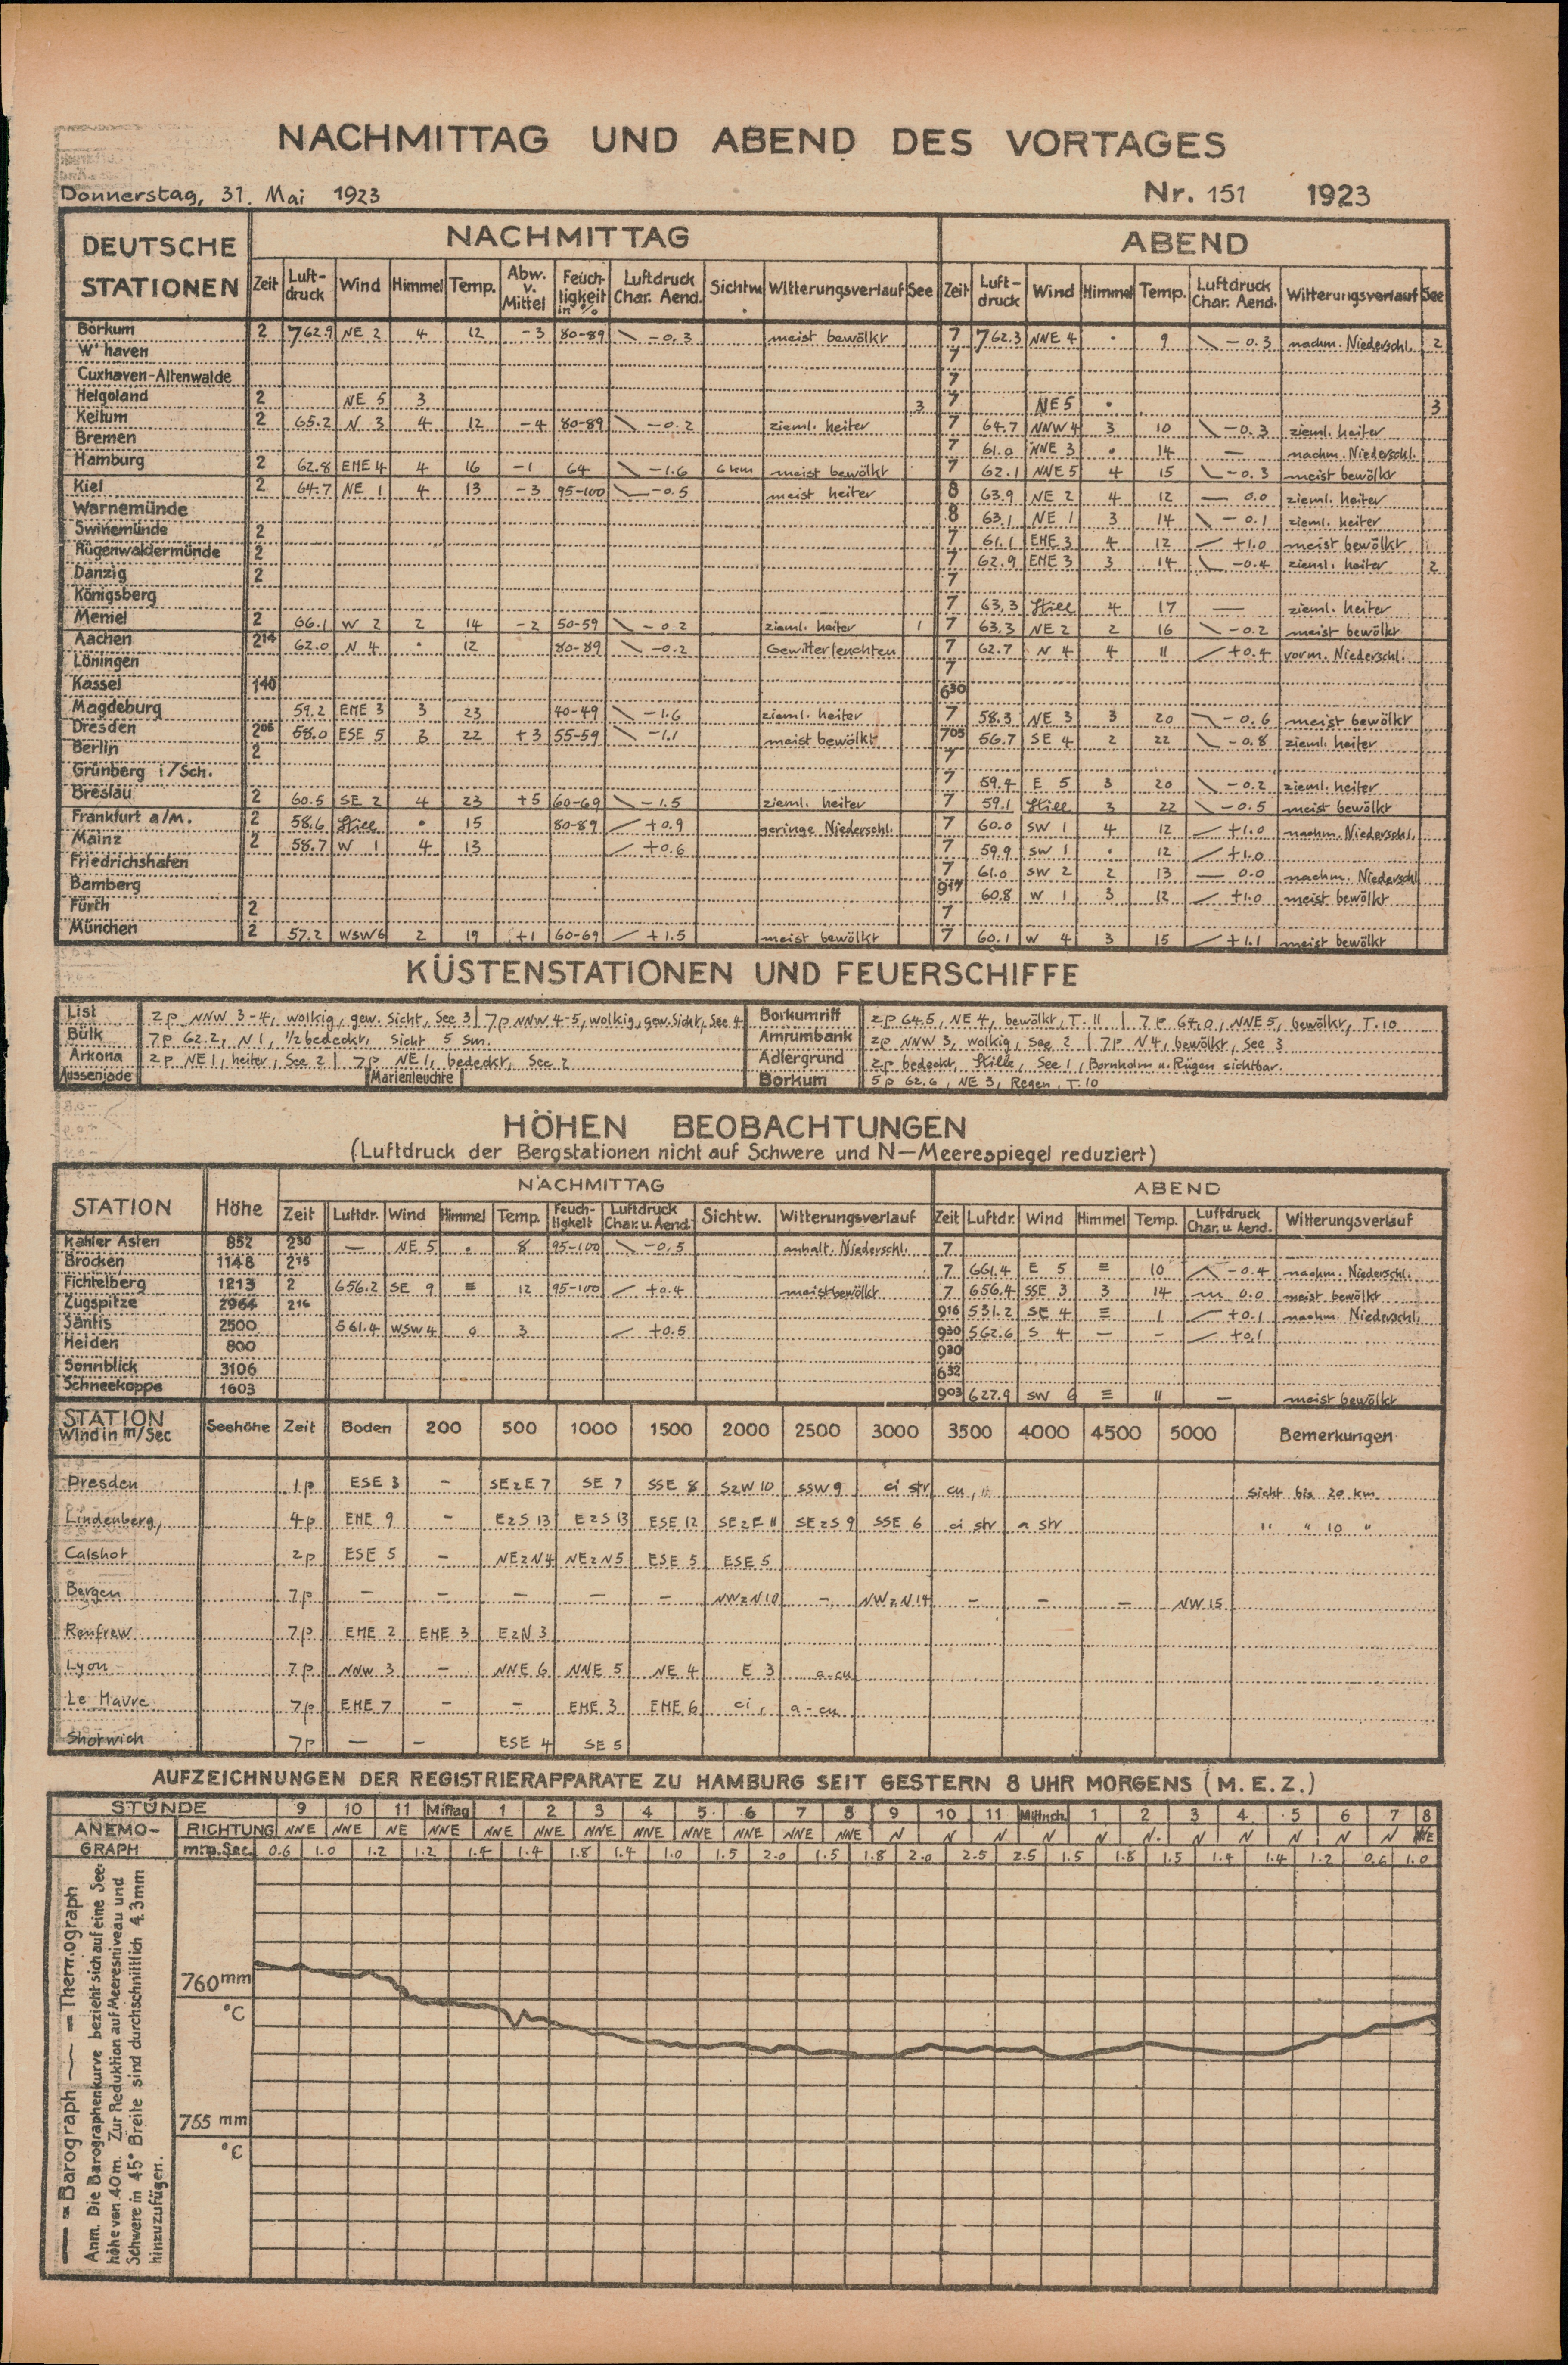 NACHMITTAG UND ABEND DES VORTAGES
Donnerstag, 31. Mai 1923 Nr. 151 1923
DEUTSCHE STATIONEN NACHMITTAG ABEND
Zeit Luft-druck Wind Himmel Temp. Abw. v. Mittel Feuch-tigkeit in % Luftdruck Char. Aend. Sichtw. Witterungsverlauf See Zeit Luft-druck Wind Himmel Temp. Luftdruck Char. Aend. Witterungsverlauf See
Borkum 2 762.9 NE 2 4 12 -3 80-89 \ -0.3 meist bewölkt 7 762.3 NNE 4 • 9 \ -0.3 nachm. Niederschl. 2
W'haven 7
Cuxhaven-Altenwalde 7
Helgoland 2 NE 5 3 3 7 NE 5 • 3
Keitum 2 65.2 N 3 4 12 -4 80-89 \ -0.2 zieml. heiter 7 64.7 NNW 4 3 10 \ -0.3 zieml. heiter
Bremen 7 61.0 NNE 3 • 14 — nachm. Niederschl.
Hamburg 2 62.8 ENE 4 4 16 -1 64 \ -1.6 6 km meist bewölkt 7 62.1 NNE 5 4 15 \ -0.3 meist bewölkt
Kiel 2 64.7 NE 1 4 13 -3 95-100 \ -0.5 meist heiter 8 63.9 NE 2 4 12 — 0.0 zieml. heiter
Warnemünde 8 63.1 NE 1 3 14 \ -0.1 zieml. heiter
Swinemünde 2 7 61.1 ENE 3 4 12 / +1.0 meist bewölkt
Rügenwaldermünde 2 7 62.9 ENE 3 3 14 \ -0.4 zieml. heiter 2
Danzig 2 7
Königsberg 7 63.3 Still 4 17 — zieml. heiter
Memel 2 66.1 W 2 2 14 -2 50-59 \ -0.2 zieml. heiter 1 7 63.3 NE 2 2 16 \ -0.2 meist bewölkt
Aachen 2¹⁴ 62.0 N 4 • 12 80-89 \ -0.2 Gewitterleuchten 7 62.7 N 4 4 11 / +0.4 vorm. Niederschl.
Löningen 7
Kassel 1⁴⁰ 6³⁰
Magdeburg 59.2 ENE 3 3 23 40-49 \ -1.6 zieml. heiter 7 58.3 NE 3 3 20 \ -0.6 meist bewölkt
Dresden 2⁰⁵ 58.0 ESE 5 3 22 +3 55-59 \ -1.1 meist bewölkt 7⁰⁵ 56.7 SE 4 2 22 \ -0.8 zieml. heiter
Berlin 2 7
Grünberg i/Sch. 7 59.4 E 5 3 20 \ -0.2 zieml. heiter
Breslau 2 60.5 SE 2 4 23 +5 60-69 \ -1.5 zieml. heiter 7 59.1 Still 3 22 \ -0.5 meist bewölkt
Frankfurt a/M. 2 58.6 Still • 15 80-89 / +0.9 geringe Niederschl. 7 60.0 SW 1 4 12 / +1.0 nachm. Niederschl.
Mainz 2 58.7 W 1 4 13 / +0.6 7 59.9 SW 1 • 12 / +1.0
Friedrichshafen 7 61.0 SW 2 2 13 — 0.0 nachm. Niederschl
Bamberg 60.8 W 1 3 12 / +1.0 meist bewölkt
Fürth 2 7
München 2 57.2 WSW 6 2 19 +1 60-69 / +1.5 meist bewölkt 7 60.1 W 4 3 15 / +1.1 meist bewölkt
KÜSTENSTATIONEN UND FEUERSCHIFFE
List 2p NNW 3-4, wolkig, gew. Sicht, See 3 | 7p NNW 4-5, wolkig, gew. Sicht, See 4 Borkumriff 2p 64.5, NE 4, bewölkt, T. 11 | 7p 64.0, NNE 5, bewölkt, T. 10
Bülk 7p 62.2, N 1, 1/2 bedeckt, Sicht 5 sm. Amrumbank 2p NNW 3, wolkig, See 2 | 7p N 4, bewölkt, See 3
Arkona 2p NE 1, heiter, See 2 | 7p NE 1, bedeckt, See 2 Adlergrund 2p bedeckt, Stille, See 1, Bornholm u. Rügen sichtbar.
Aussenjade Marienleuchte Borkum 5p 62.6, NE 3, Regen, T. 10
HÖHEN BEOBACHTUNGEN
(Luftdruck der Bergstationen nicht auf Schwere und N—Meerespiegel reduziert)
STATION Höhe NACHMITTAG ABEND
Zeit Luftdr. Wind Himmel Temp. Feuch-tigkeit Luftdruck Char. u. Aend. Sichtw. Witterungsverlauf Zeit Luftdr. Wind Himmel Temp. Luftdruck Char. u. Aend. Witterungsverlauf
Kahler Asten 852 2³⁰ — NE 5 • 8 95-100 \ -0.5 anhalt. Niederschl. 7
Brocken 1148 2¹⁵ 7 661.4 E 5 ≡ 10 -0.4 nachm. Niederschl.
Fichtelberg 1213 2 656.2 SE 9 ≡ 12 95-100 / +0.4 meist bewölkt 7 656.4 SSE 3 3 14 0.0 meist bewölkt
Zugspitze 2964 2¹⁶ 9¹⁶ 531.2 SE 4 ≡ 1 / +0.1 nachm. Niederschl.
Säntis 2500 561.4 WSW 4 0 3 / +0.5 9³⁰ 562.6 S 4 — - / +0.1
Heiden 800 9³⁰
Sonnblick 3106 6³²
Schneekoppe 1603 9⁰³ 627.9 SW 6 ≡ 11 — meist bewölkt
STATION Wind in m/Sec Seehöhe Zeit Boden 200 500 1000 1500 2000 2500 3000 3500 4000 4500 5000 Bemerkungen
Dresden 1p ESE 3 - SEzE 7 SE 7 SSE 8 SzW 10 SSW 9 ci str cu, Sicht bis 20 km
Lindenberg, 4p ENE 9 - EzS 13 EzS 13 ESE 12 SEzE 11 SEzS 9 SSE 6 ci str a str " " 10 "
Calshot 2p ESE 5 - NEzN 4 NEzN 5 ESE 5 ESE 5
Bergen 7p - - - - - NWzN 10 - NWzN 14 - - - NW 15
Renfrew 7p ENE 2 ENE 3 EzN 3
Lyon 7p NNW 3 - NNE 6 NNE 5 NE 4 E 3 a-cu
Le Havre 7p ENE 7 - - ENE 3 ENE 6 ci, a-cu
Shotwich 7p — - ESE 4 SE 5
AUFZEICHNUNGEN DER REGISTRIERAPPARATE ZU HAMBURG SEIT GESTERN 8 UHR MORGENS (M.E.Z.)
STUNDE 9 10 11 Mittag 1 2 3 4 5 6 7 8 9 10 11 Mittnch. 1 2 3 4 5 6 7 8
ANEMO-GRAPH RICHTUNG NNE NNE NE NNE NNE NNE NNE NNE NNE NNE NNE NNE N N N N N N N N N N N NNE
m.p.Sec. 0.6 1.0 1.2 1.2 1.4 1.4 1.8 1.4 1.0 1.5 2.0 1.5 1.8 2.0 2.5 2.5 1.5 1.8 1.5 1.4 1.4 1.2 0.6 1.0
760 mm
°C
755 mm
°C
— = Barograph = Thermograph
Anm. Die Barographenkurve bezieht sich auf eine See-
höhe von 40m. Zur Reduktion auf Meeresniveau und
Schwere in 45° Breite sind durchschnittlich 4.3mm
hinzuzufügen.